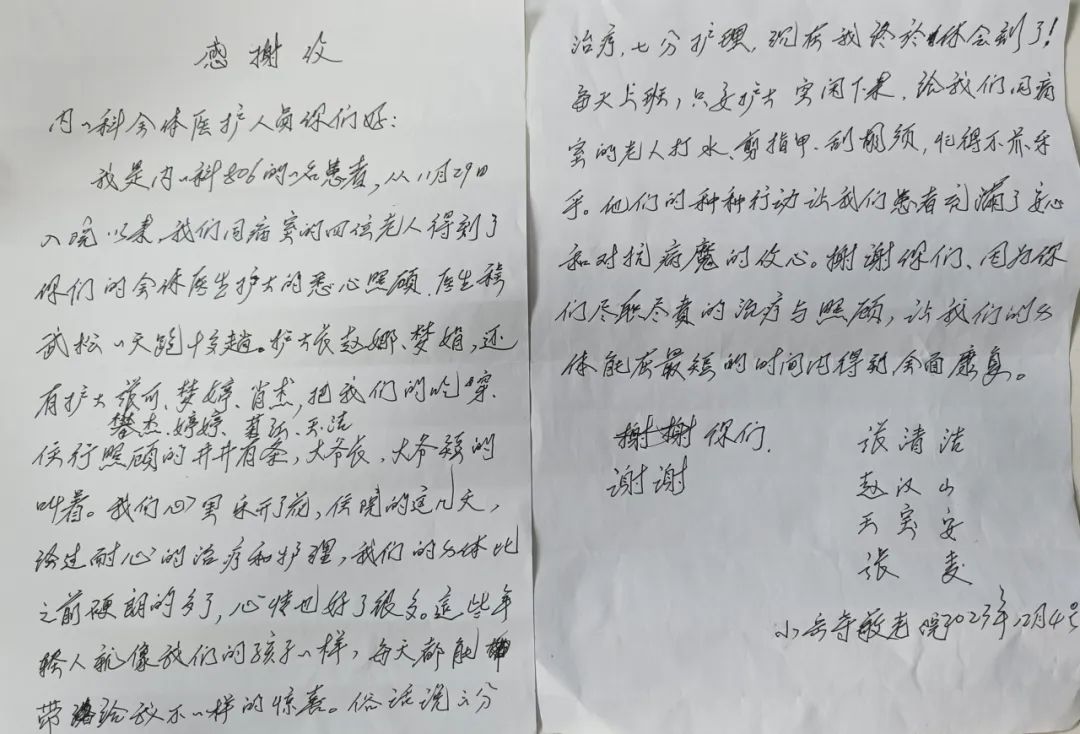 感谢信
内一科全体医护人员你们好：
我是内一科806的一名患者，从11月29日
入院以来，我们同病室的四位老人得到了
你们的全体医生护士的悉心照顾，医生
武松一天跑十多趟。护士长赵娜、梦娟，还
有护士张可、梦婷、肖杰，把我们的吃穿、
樊杰、婷婷
住行照顾的井井有条，大爷长，大爷短的
叫着。我们心里乐开了花，住院的这几天，
经过耐心的治疗和护理，我们的身体比
之前硬朗的多了，心情也好了很多。这些年
轻人就像我们的孩子一样，每天都能
带给我不一样的惊喜。俗话说三分
治疗，七分护理，现在我终于体会到了！
每天上班，只要护士空闲下来，给我们同病
室的老人打水、剪指甲、刮胡须，忙得不亦乐
乎。他们的种种行动让我们患者充满了安心
和对抗病魔的信心。谢谢你们、因为你
们尽职尽责的治疗与照顾，让我们的身
体能在最短的时间内得到全面康复。
谢谢你们. 张清洁
谢谢 赵汉山
王宝安
张麦
小岳寺敬老院2023年12月4号